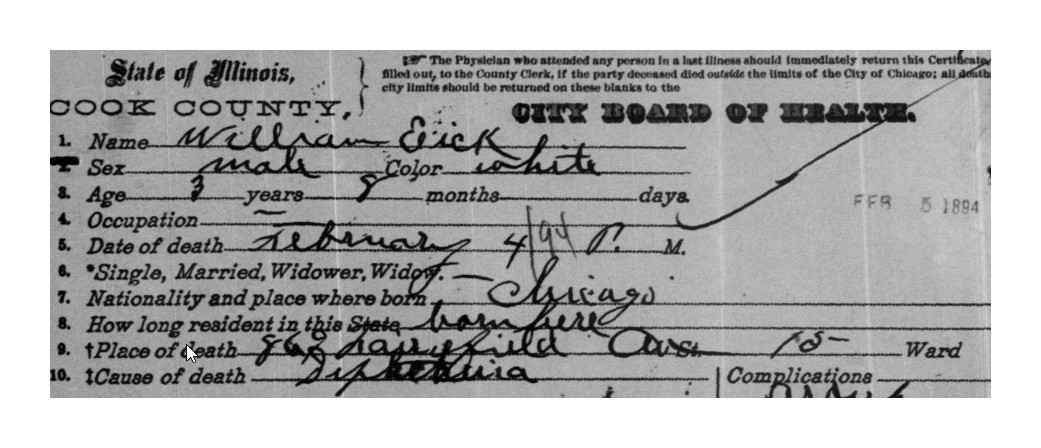 State of Illinois,
COOK COUNTY,
☞ The Physician who attended any person in a last illness should immediately return this Certificate,
filled out, to the County Clerk, if the party deceased died outside the limits of the City of Chicago; all death
city limits should be returned on these blanks to the
CITY BOARD OF HEALTH.
1. Name William Eick
2. Sex male Color white
3. Age 3 years 8 months days.
FEB 5 1894
4. Occupation —
5. Date of death February 4/94 P. M.
6. *Single, Married, Widower, Widow. —
7. Nationality and place where born, Chicago
8. How long resident in this State born here
9. †Place of death Ave St. 15 Ward
10. ‡Cause of death Diphtheria Complications